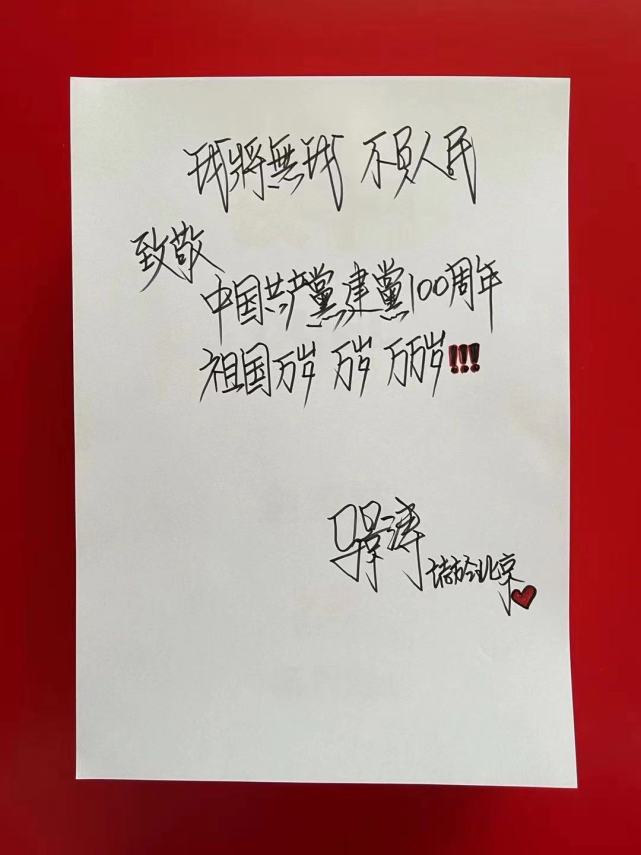 我將無我 不负人民
致敬
中国共产黨建黨100周年
祖国万岁 万岁 万万岁!!!
马景涛 於北京